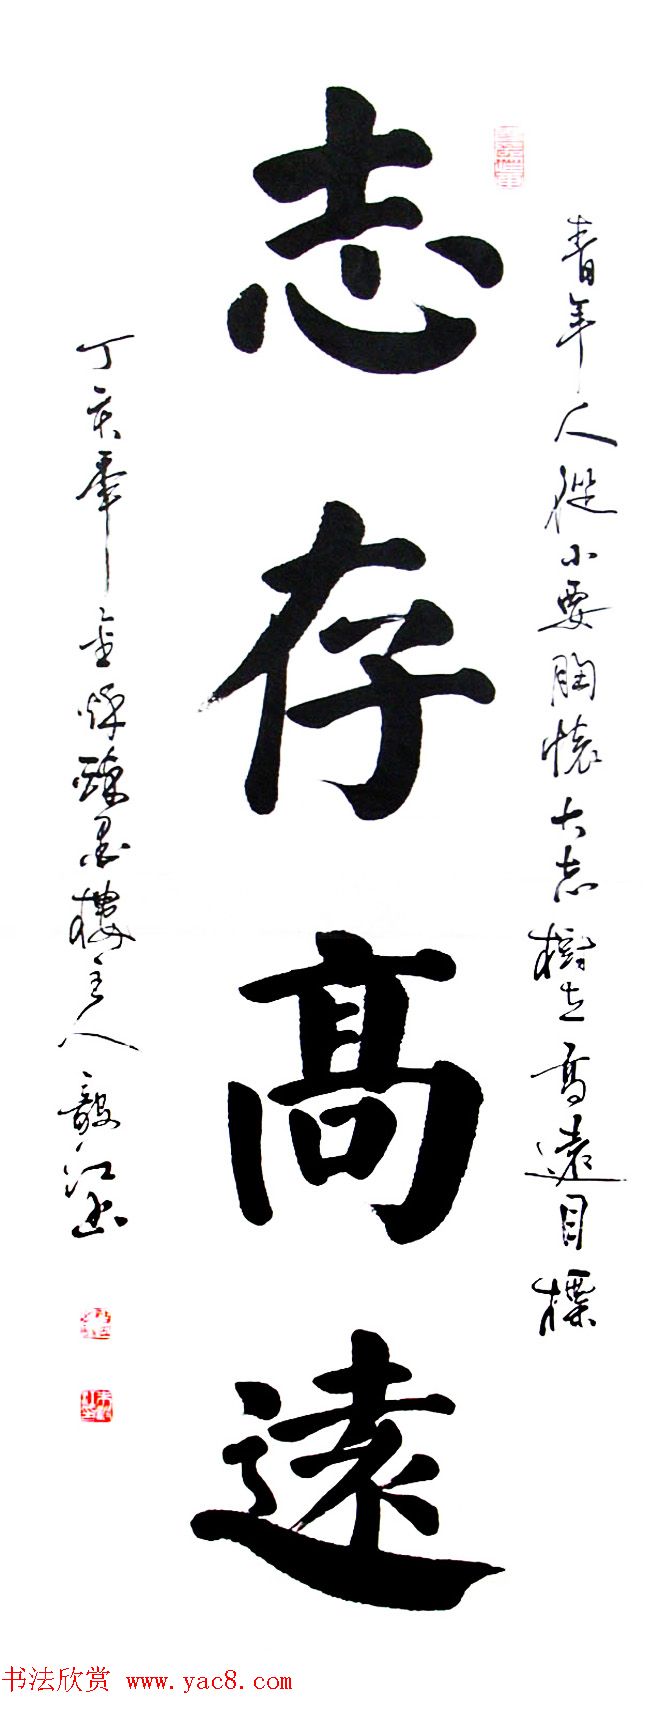 青年人從小要胸懷大志樹立高遠目標
志存高遠
丁亥年
樓主人毅江书
书法欣赏 www.yac8.com